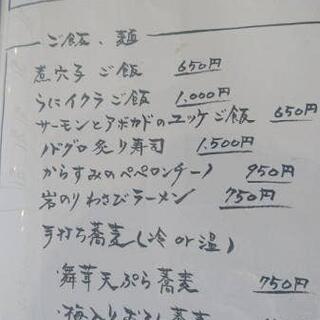 ご飯、麺
煮穴子ご飯 650円
うにイクラご飯 1,000円
サーモンとアボカドのユッケご飯 650円
ノドグロ炙り寿司 1,500円
からすみのペペロンチーノ 950円
岩のりわさびラーメン 750円
手打ち蕎麦(冷or温)
・舞茸天ぷら蕎麦 750円
・梅入りおろし蕎麦